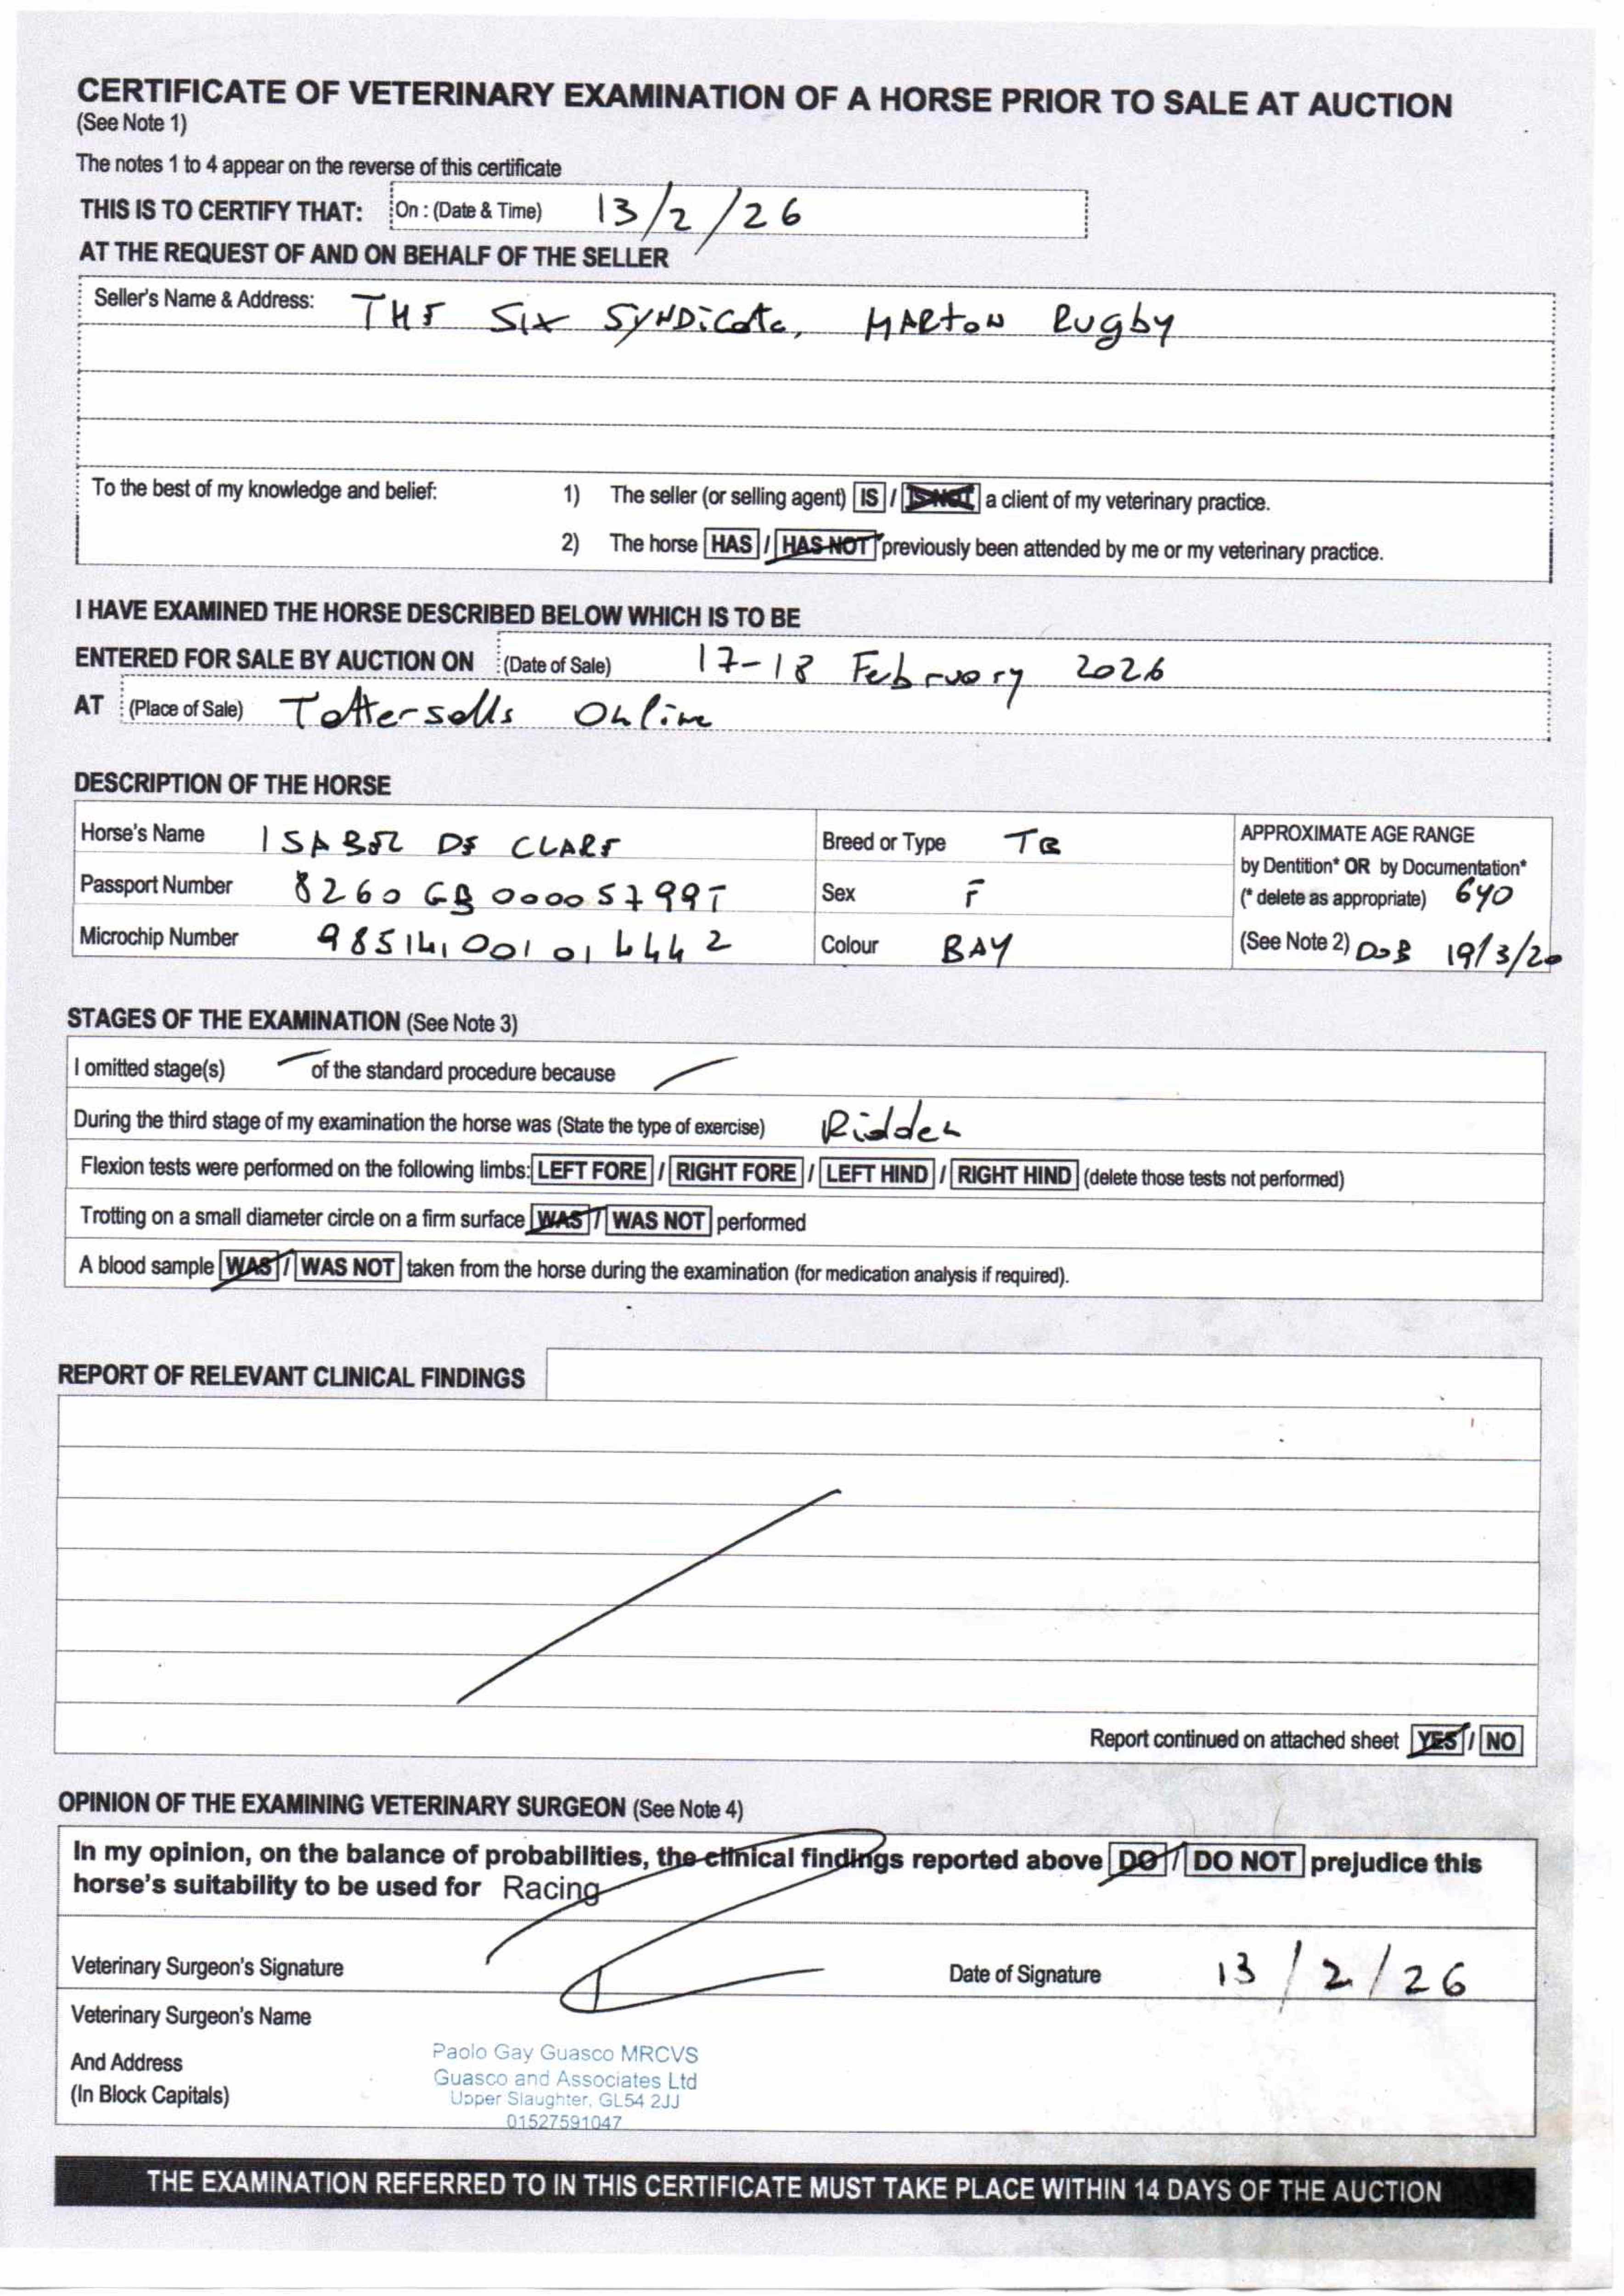 CERTIFICATE OF VETERINARY EXAMINATION OF A HORSE PRIOR TO SALE AT AUCTION
(See Note 1)
The notes 1 to 4 appear on the reverse of this certificate
THIS IS TO CERTIFY THAT: On : (Date & Time) 13/2/26
AT THE REQUEST OF AND ON BEHALF OF THE SELLER
Seller's Name & Address: THE SIX SYNDICATE, MARTON RUGBY
To the best of my knowledge and belief: 1) The seller (or selling agent) IS / IS NOT a client of my veterinary practice.
2) The horse HAS / HAS NOT previously been attended by me or my veterinary practice.
I HAVE EXAMINED THE HORSE DESCRIBED BELOW WHICH IS TO BE
ENTERED FOR SALE BY AUCTION ON (Date of Sale) 17-18 February 2026
AT (Place of Sale) Tattersalls Online
DESCRIPTION OF THE HORSE
Horse's Name ISABEL DE CLARE Breed or Type TB APPROXIMATE AGE RANGE
by Dentition* OR by Documentation*
Passport Number 8260 GB 00005799T Sex F (* delete as appropriate) 6YO
Microchip Number 985141001014442 Colour BAY (See Note 2) DOB 19/3/20
STAGES OF THE EXAMINATION (See Note 3)
I omitted stage(s) — of the standard procedure because —
During the third stage of my examination the horse was (State the type of exercise) Ridden
Flexion tests were performed on the following limbs: LEFT FORE / RIGHT FORE / LEFT HIND / RIGHT HIND (delete those tests not performed)
Trotting on a small diameter circle on a firm surface WAS / WAS NOT performed
A blood sample WAS / WAS NOT taken from the horse during the examination (for medication analysis if required).
REPORT OF RELEVANT CLINICAL FINDINGS
Report continued on attached sheet YES / NO
OPINION OF THE EXAMINING VETERINARY SURGEON (See Note 4)
In my opinion, on the balance of probabilities, the clinical findings reported above DO / DO NOT prejudice this
horse's suitability to be used for Racing
Veterinary Surgeon's Signature Date of Signature 13/2/26
Veterinary Surgeon's Name
And Address
(In Block Capitals)
Paolo Gay Guasco MRCVS
Guasco and Associates Ltd
Upper Slaughter, GL54 2JJ
01527591047
THE EXAMINATION REFERRED TO IN THIS CERTIFICATE MUST TAKE PLACE WITHIN 14 DAYS OF THE AUCTION